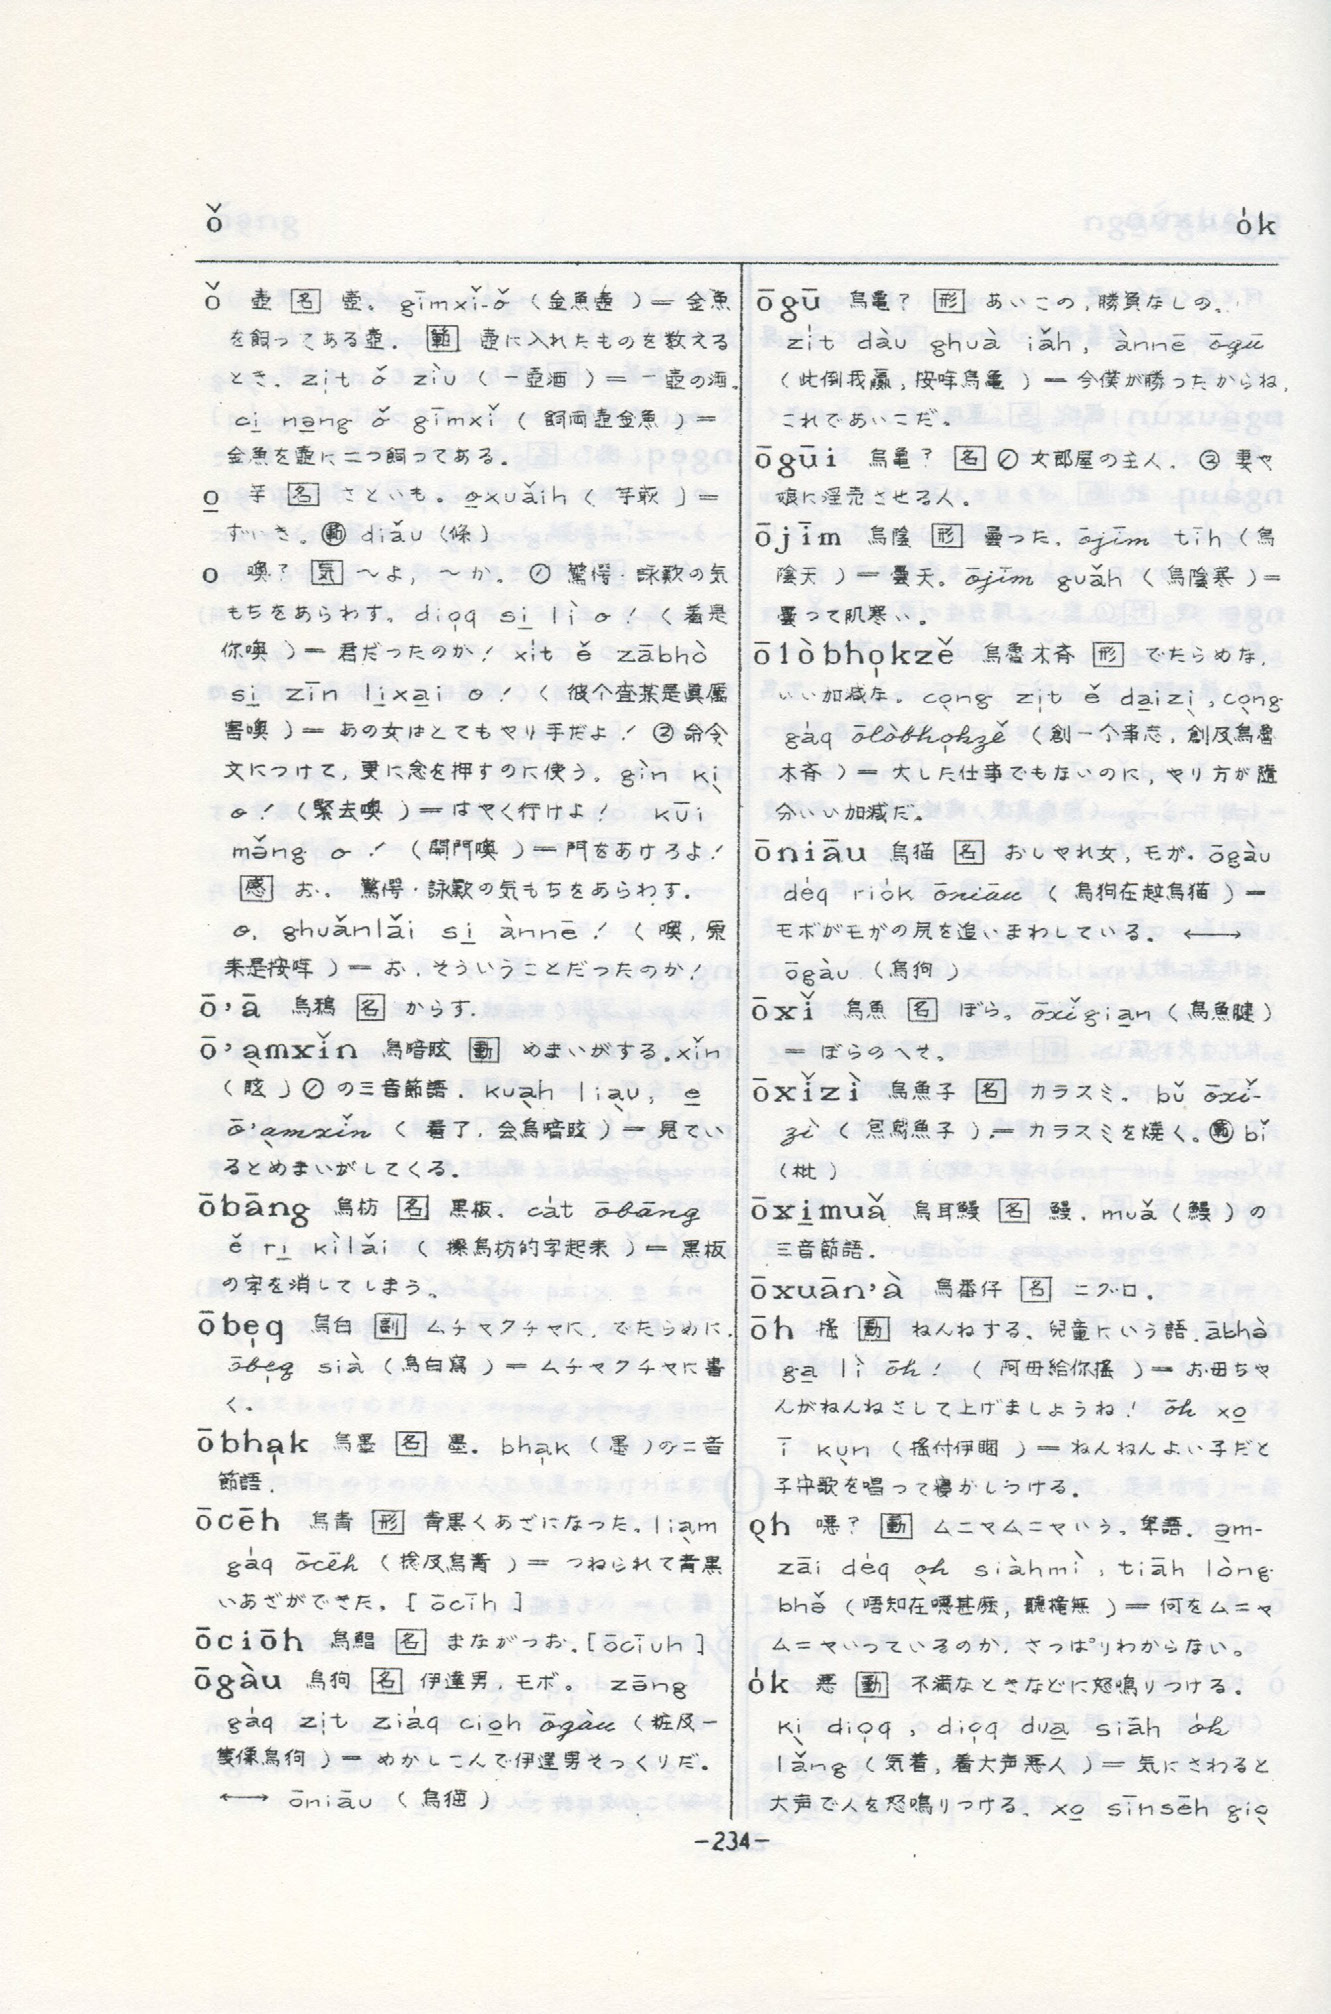 ǒ
o̍k
ǒ 壺 名 壺。gīmxǐ-ǒ（金魚壺）＝金魚
を飼ってある壺。 範 壺に入れたものを数える
とき。zı̣t ǒ ziù（一壺酒）＝一壺の酒。
ci̱ nə̱ng ǒ gīmxǐ（飼両壺金魚）＝
金魚を壺に二つ飼ってある。
o̱ 芋 名 さといも。o̱xuǎih（芋萩）＝
ずいき。範 diǎu（條）
o 噢？ 気 〜よ，〜か。① 驚愕・詠歎の気
もちをあらわす。dioq si̱ lì o！（着是
你噢）＝君だったのか！ xı̍t ě zābhò
si̱ zīn li̱xa̱i o！（彼个査某是眞厲
害噢）＝あの女はとてもやり手だよ！ ② 命令
文につけて，更に念を押すのに使う。gìn kị
o！（緊去噢）＝はやく行けよ！ kūi
mə̌ng o！（開門噢）＝門をあけろよ！
感 お． 驚愕・詠歎の気もちをあらわす．
o, ghuǎnlǎi si̱ ànnē！（噢，原
来是按哖）＝お，そういうことだったのか！
ō'ā 烏鴉 名 からす．
ō'ạmxǐn 烏暗眩 動 めまいがする。xǐn
（眩）① の三音節語．kuạh liạu, e̱
ō'ạmxǐn（看了，会烏暗眩）＝見てい
るとめまいがしてくる。
ōbāng 烏枋 名 黒板．cȧt ōbāng
ě ri̱ kìlǎi（擦烏枋的字起来）＝黒板
の字を消してしまう。
ōbẹq 烏白 副 ムチャクチャに，でたらめに．
ōbẹq sià（烏白寫）＝ムチャクチャに書
く．
ōbhạk 烏墨 名 墨．bhạk（墨）の二音
節語．
ōcēh 烏青 形 青黒くあざになった。liạm
gȧq ōcēh（捻及烏青）＝つねられて青黒
いあざができた。[ōcīh]
ōciōh 烏鯧 名 まながつお．[ōciūh]
ōgàu 烏狗 名 伊達男，モボ。zəng
gȧq zı̣t ziȧq cioh ōgàu（粧及一
隻像烏狗）＝めかしこんで伊達男そっくりだ。
⟷ ōniāu（烏猫）
ōgū 烏亀？ 形 あいこの，勝負なしの。
zı̍t dàu ghuà iǎh, ànnē ōgū
（此倒我贏，按哖烏亀）＝今僕が勝ったからね，
これであいこだ。
ōgūi 烏亀？ 名 ① 女郎屋の主人．② 妻や
娘に淫売させる人。
ōjīm 烏陰 形 曇った．ōjīm tīh（烏
陰天）＝曇天。ōjīm guǎh（烏陰寒）＝
曇って肌寒い。
ōlòbhọkzě 烏魯木斉 形 でたらめな，
いい加減な。cọng zı̣t ě da̱izị, cọng
gȧq ōlòbhọkzě（創一个事志，創及烏魯
木斉）＝大した仕事でもないのに，やり方が随
分いい加減だ。
ōniāu 烏猫 名 おしゃれ女，モガ．ōgàu
dėq riȯk ōniāu（烏狗在趒烏猫）＝
モボがモガの尻を追いまわしている。⟷
ōgàu（烏狗）
ōxǐ 烏魚 名 ぼら。ōxǐgia̱n（烏魚腱）
＝ぼらのへそ。
ōxǐzì 烏魚子 名 カラスミ．bǔ ōxǐ-
zì（炰烏魚子）＝カラスミを焼く。範 bǐ
（枇）
ōxi̱muǎ 烏耳鰻 名 鰻．muǎ（鰻）の
三音節語．
ōxuān'à 烏番仔 名 ニグロ．
ōh 搖 動 ねんねする。兒童にいう語．ābhə
ga̱ lì ōh！（阿母給你搖）＝お母ちゃ
んがねんねさして上げましようね！ ōh xo̱
ī kụn（搖付伊睏）＝ねんねんよい子だと
子守歌を唱って寝かしつける．
ọh 噁？ 動 ムニャムニャいう。卑語．ə̱m-
zāi dėq ọh siàhmì, tiāh lòng
bhə̌（唔知在噁甚麼，聽攏無）＝何をムニャ
ムニャいっているのか，さっぱりわからない。
ȯk 悪 動 不満なときなどに怒鳴りつける．
kị dioq, dioq dua̱ siāh ȯk
lǎng（気着，着大声悪人）＝気にさわると
大声で人を怒鳴りつける．xo̱ sīnsēh giọ
-234-